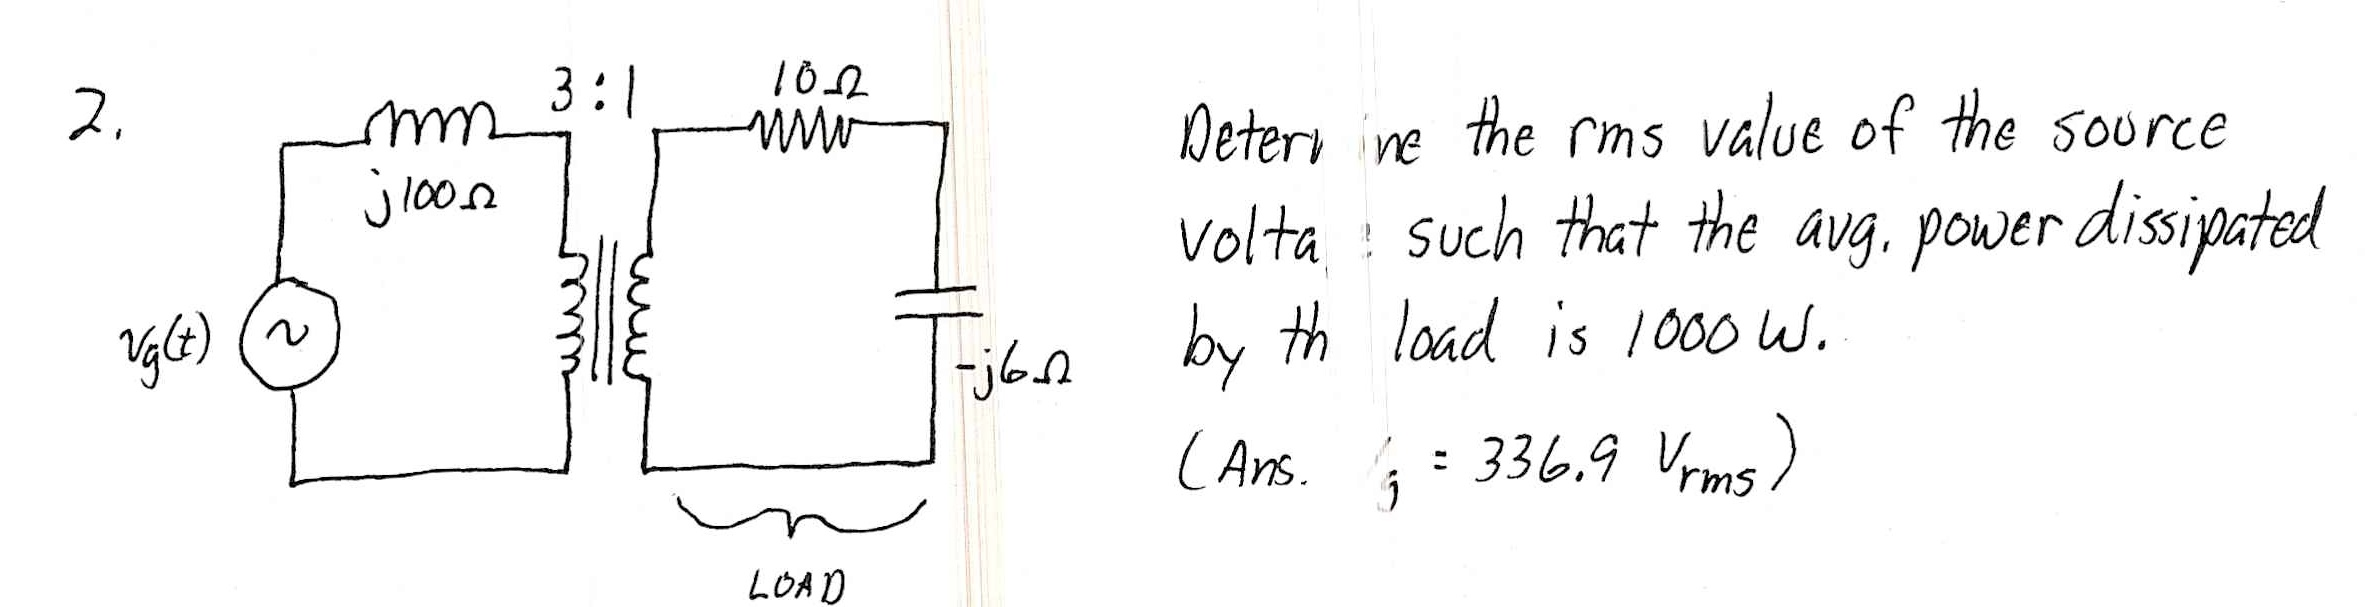 2.
3:1
10Ω
j100Ω
vg(t)
-j6Ω
LOAD
Deter ne the rms value of the source
volta such that the avg. power dissipated
by th load is 1000 W.
(Ans. = 336.9 Vrms)